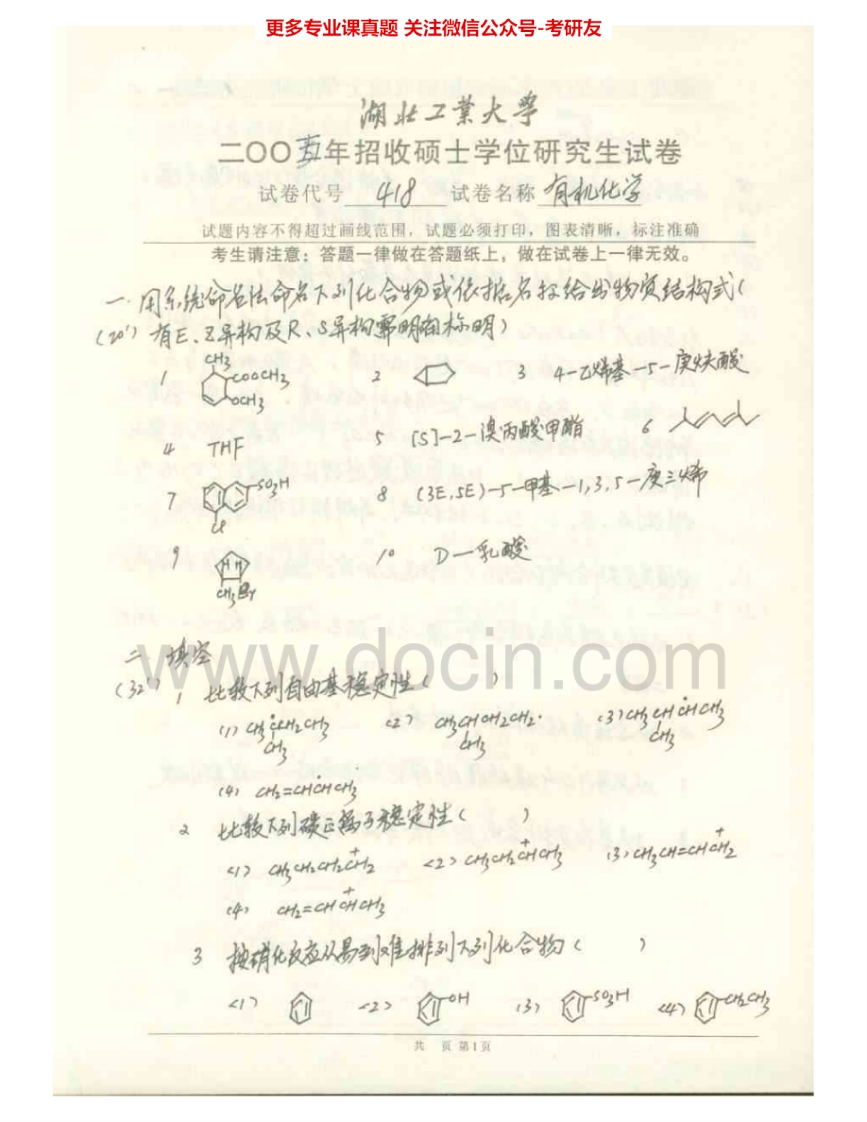 更多专业课真题 关注微信公众号-考研友
湖北工業大学
二〇〇五年招收硕士学位研究生试卷
试卷代号 418 试卷名称 有机化学
试题内容不得超过画线范围，试题必须打印，图表清晰，标注准确
考生请注意：答题一律做在答题纸上，做在试卷上一律无效。
一. 用系统命名法命名下列化合物或依据名称给出物质结构式(
(20') 有E、Z异构及R、S异构需明确标明)
1 CH3 COOCH3 OCH3 2 3 4-乙烯基-5-庚炔酸
4 THF 5 [S]-2-溴丙酸甲酯 6
7 SO3H Cl 8 (3E,5E)-5-甲基-1,3,5-庚三烯
9 H H CH3 Br 10 D-乳酸
二 填空
www.docin.com
(32') 1 比较下列自由基稳定性( )
(1) CH3ĊCH2CH3 CH3 (2) CH3CHCH2CH2· CH3 (3) CH3CHĊHCH3 CH3
(4) CH2=CHĊHCH3
2 比较下列碳正离子稳定性( )
(1) CH3CH2CH2C+H2 (2) CH3CH2C+HCH3 (3) CH3CH=CHC+H2
(4) CH2=CHC+HCH3
3 按硝化反应从易到难排列下列化合物( )
(1) (2) OH (3) SO3H (4) CH2CH3
共 页 第1页